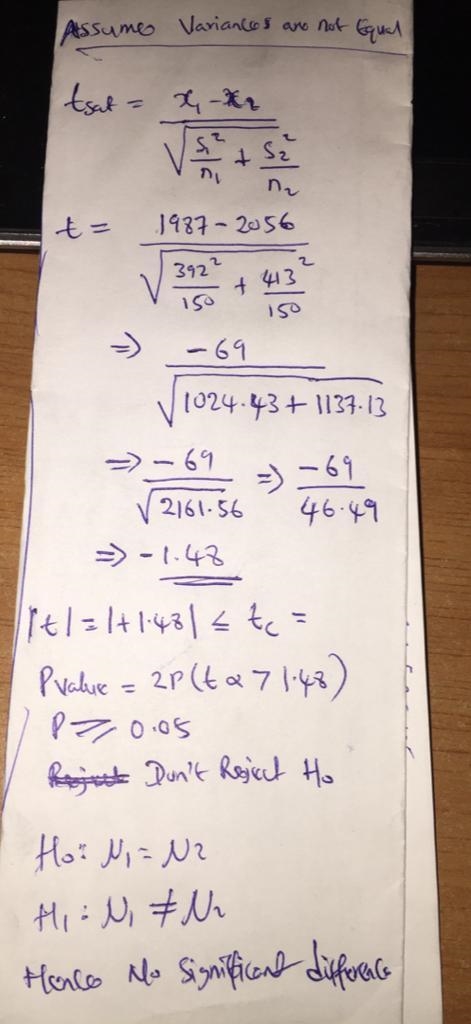 Assumes Variances are not Equal
tsat = x₁ - x₂ / √(S₁²/n₁ + S₂²/n₂)
t = 1987 - 2056 / √(392²/150 + 413²/150)
=> -69 / √(1024.43 + 1137.13)
=> -69 / √2161.56 => -69 / 46.49
=> -1.48
|t| = |+1.48| ≤ tc =
Pvalue = 2P(tα > 1.48)
P ≥ 0.05
Reject Don't Reject Ho
Ho: N₁ = N₂
H₁: N₁ ≠ N₂
Hence No Significant difference